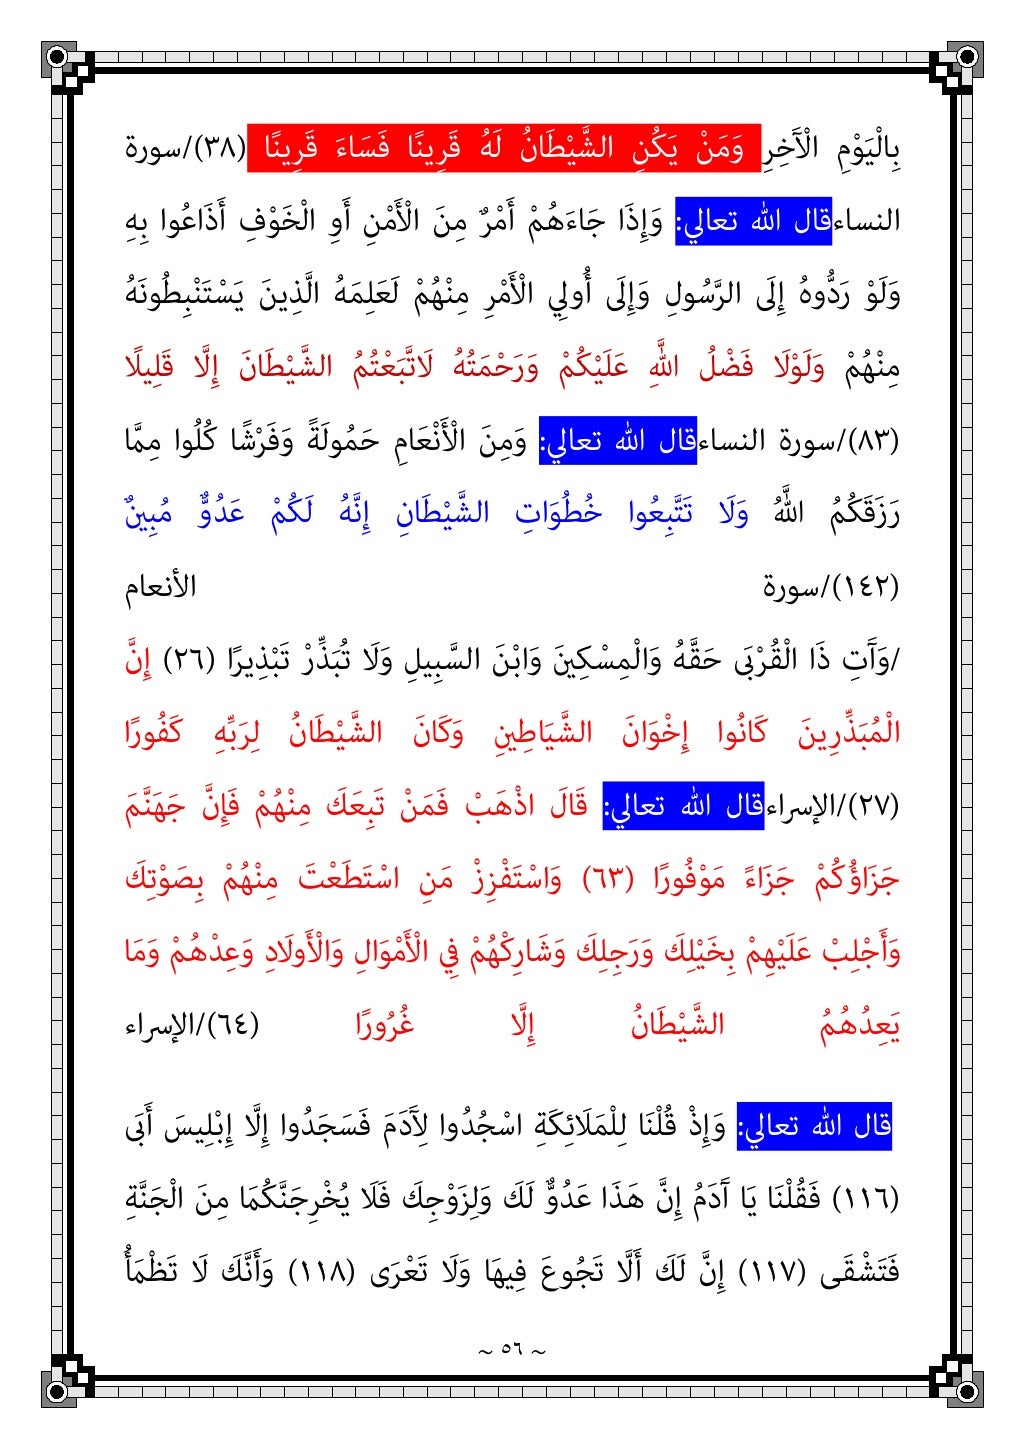 بِالْيَوْمِ الْآَخِرِ وَمَنْ يَكُنِ الشَّيْطَانُ لَهُ قَرِينًا فَسَاءَ قَرِينًا (٣٨)/سورة
النساءقال الله تعالي: وَإِذَا جَاءَهُمْ أَمْرٌ مِنَ الْأَمْنِ أَوِ الْخَوْفِ أَذَاعُوا بِهِ
وَلَوْ رَدُّوهُ إِلَى الرَّسُولِ وَإِلَى أُولِي الْأَمْرِ مِنْهُمْ لَعَلِمَهُ الَّذِينَ يَسْتَنْبِطُونَهُ
مِنْهُمْ وَلَوْلَا فَضْلُ اللَّهِ عَلَيْكُمْ وَرَحْمَتُهُ لَاتَّبَعْتُمُ الشَّيْطَانَ إِلَّا قَلِيلًا
(٨٣)/سورة النساءقال الله تعالي: وَمِنَ الْأَنْعَامِ حَمُولَةً وَفَرْشًا كُلُوا مِمَّا
رَزَقَكُمُ اللَّهُ وَلَا تَتَّبِعُوا خُطُوَاتِ الشَّيْطَانِ إِنَّهُ لَكُمْ عَدُوٌّ مُبِينٌ
(١٤٢)/سورة الأنعام
/وَآَتِ ذَا الْقُرْبَى حَقَّهُ وَالْمِسْكِينَ وَابْنَ السَّبِيلِ وَلَا تُبَذِّرْ تَبْذِيرًا (٢٦) إِنَّ
الْمُبَذِّرِينَ كَانُوا إِخْوَانَ الشَّيَاطِينِ وَكَانَ الشَّيْطَانُ لِرَبِّهِ كَفُورًا
(٢٧)/الإسراءقال الله تعالي: قَالَ اذْهَبْ فَمَنْ تَبِعَكَ مِنْهُمْ فَإِنَّ جَهَنَّمَ
جَزَاؤُكُمْ جَزَاءً مَوْفُورًا (٦٣) وَاسْتَفْزِزْ مَنِ اسْتَطَعْتَ مِنْهُمْ بِصَوْتِكَ
وَأَجْلِبْ عَلَيْهِمْ بِخَيْلِكَ وَرَجِلِكَ وَشَارِكْهُمْ فِي الْأَمْوَالِ وَالْأَولَادِ وَعِدْهُمْ وَمَا
يَعِدُهُمُ الشَّيْطَانُ إِلَّا غُرُورًا (٦٤)/الإسراء
قال الله تعالي: وَإِذْ قُلْنَا لِلْمَلَائِكَةِ اسْجُدُوا لِآَدَمَ فَسَجَدُوا إِلَّا إِبْلِيسَ أَبَى
(١١٦) فَقُلْنَا يَا آَدَمُ إِنَّ هَذَا عَدُوٌّ لَكَ وَلِزَوْجِكَ فَلَا يُخْرِجَنَّكُمَا مِنَ الْجَنَّةِ
فَتَشْقَى (١١٧) إِنَّ لَكَ أَلَّا تَجُوعَ فِيهَا وَلَا تَعْرَى (١١٨) وَأَنَّكَ لَا تَظْمَأُ
~ ٥٦ ~